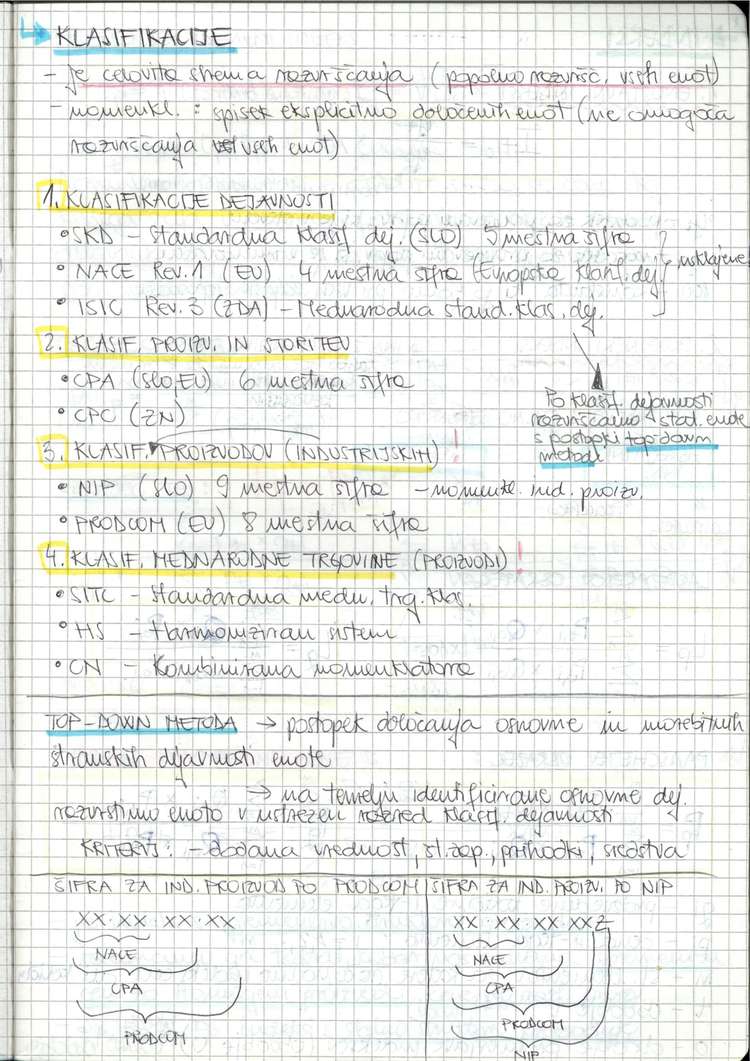 KLASIFIKACIJE
- je celovita shema razvrščanja (popolno razvršč. vseh enot)
- nomenkl. = spisek eksplicitno določenih enot (ne omogoča
razvrščanja vseh enot)
1. KLASIFIKACIJE DEJAVNOSTI
• SKD - Standardna klasif. dej. (SLO) 5 mestna šifra
• NACE Rev. 1 (EU) 4 mestna šifra (Evropska klasif. dej.) usklajene
• ISIC Rev. 3 (ZDA) - Mednarodna stand. klas. dej.
2. KLASIF. PROIZV. IN STORITEV
• CPA (SLO, EU) 6 mestna šifra
• CPC (ZN)
Po klasif. dejavnosti
razvrščamo stat. enote
s postopki top-down
metode
3. KLASIF. PROIZVODOV (INDUSTRIJSKIH) !
• NIP (SLO) 9 mestna šifra - nomenkl. ind. proizv.
• PRODCOM (EU) 8 mestna šifra
4. KLASIF. MEDNARODNE TRGOVINE (PROIZVODI) !
• SITC - Standardna medn. trg. klas.
• HS - Harmoniziran sistem
• CN - Kombinirana nomenklatura
TOP-DOWN METODA → postopek določanja osnovne in morebitnih
stranskih dejavnosti enote
→ na temelju identificirane osnovne dej.
razvrstimo enoto v ustrezen razred klasif. dejavnosti
KRITERIJ: - dodana vrednost, št. zap., prihodki, sredstva
ŠIFRA ZA IND. PROIZVOD PO PRODCOM
XX.XX.XX.XX
NACE
CPA
PRODCOM
ŠIFRA ZA IND. PROIZV. PO NIP
XX.XX.XX.XXZ
NACE
CPA
PRODCOM
NIP